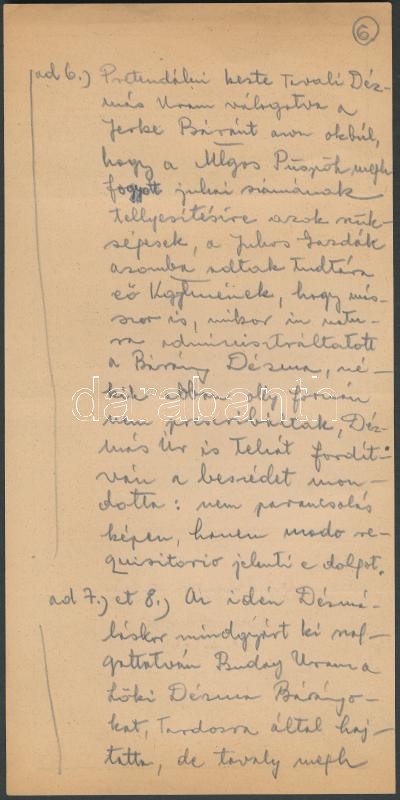 6.
ad 6.) Pretendálni kezte Tavali Déz-
más Uram válogatva a
Jerke Báránt avon okbúl,
hogy a Mlgos Püspök megh
fogyott juhai számának
tellyesitésire azok szük-
ségesek, a Juhos Gazdák
azomba adtak tudtára
eő Kglmének, hogy más-
szor is, mikor in natu-
ra administráltatott
a Bárány Dézma, né-
kik abban oly formán
nem praescribáltak, Déz-
más Ur is Tehát fordít-
ván a beszédet mon-
dotta: nem parancsolás
képen, hanem modo re-
quisitorio jelenti e dolgot.
ad 7.) et 8.) Az idén Dézmá-
láskor mindgyárt ki val-
gattatván Buday Uram a
Löki Dézma Bárányo-
kat, Tardosra által haj-
tatta, de tavaly megh
darabanth